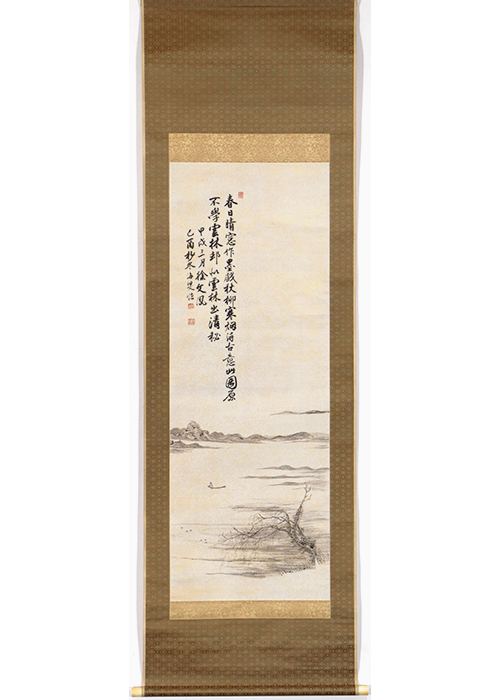 春日晴窓作墨戯枯柳寒烟古意此圖原
不學雲林却似雲林出清秘
甲戌三月徐文鳳
乙酉杪冬